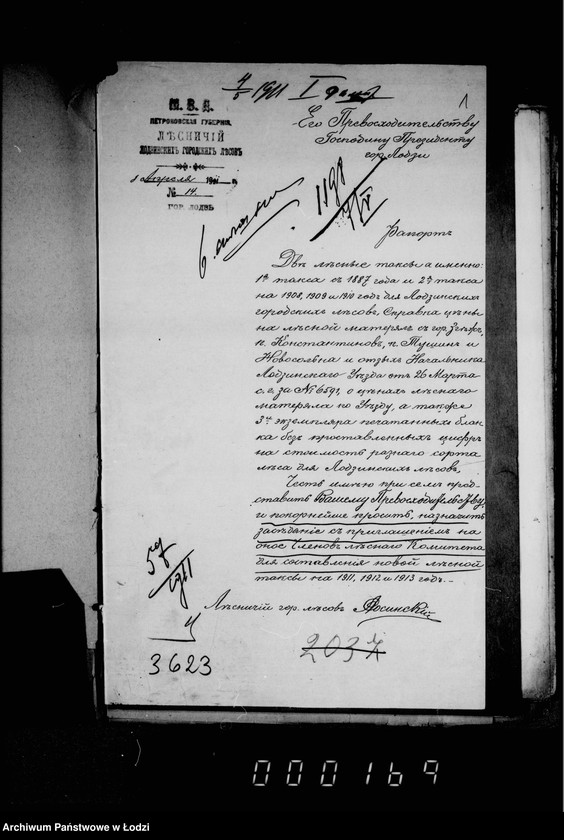 4/5 1911 I
1
М. В. Д.
ПЕТРОКОВСКАЯ ГУБЕРНІЯ.
ЛѢСНИЧІЙ
ЛОДЗИНСКИХЪ ГОРОДСКИХЪ ЛѢСОВЪ
Апрѣля 1911 г.
№ 14.
ГОР. ЛОДЗЬ
Его Превосходительству
Господину Президенту
гор. Лодзи
1198
Рапортъ
Двѣ лѣсные таксы а именно:
1ая такса съ 1887 года и 2ая такса
на 1908, 1909 и 1910 годъ для Лодзинскихъ
городскихъ лѣсовъ, Справка цѣны
на лѣсной матерялъ съ гор. Згежъ,
п. Константиновъ, п. Тушинъ и
Новосольна и отзывъ Начальника
Лодзинскаго Уѣзда отъ 26 Марта
с. г. за № 6591, о цѣнахъ лѣснаго
матеряла по Уѣзду, а также
3 экземпляра печатанныхъ блан
ка безъ проставленныхъ цифръ
на стоимость разнаго сорта
лѣса для Лодзинскихъ лѣсовъ,
Честь имѣю при семъ пред-
ставить Вашему Превосходительству,
и покорнѣйше просить, назначить
засѣданіе съ приглашеніемъ на
оное Членовъ лѣснаго Комитета
для составленія новой лѣсной
таксы на 1911, 1912 и 1913 годъ. –
Лѣсничій гор. лѣсовъ
3623
2037
000169
Archiwum Państwowe w Łodzi